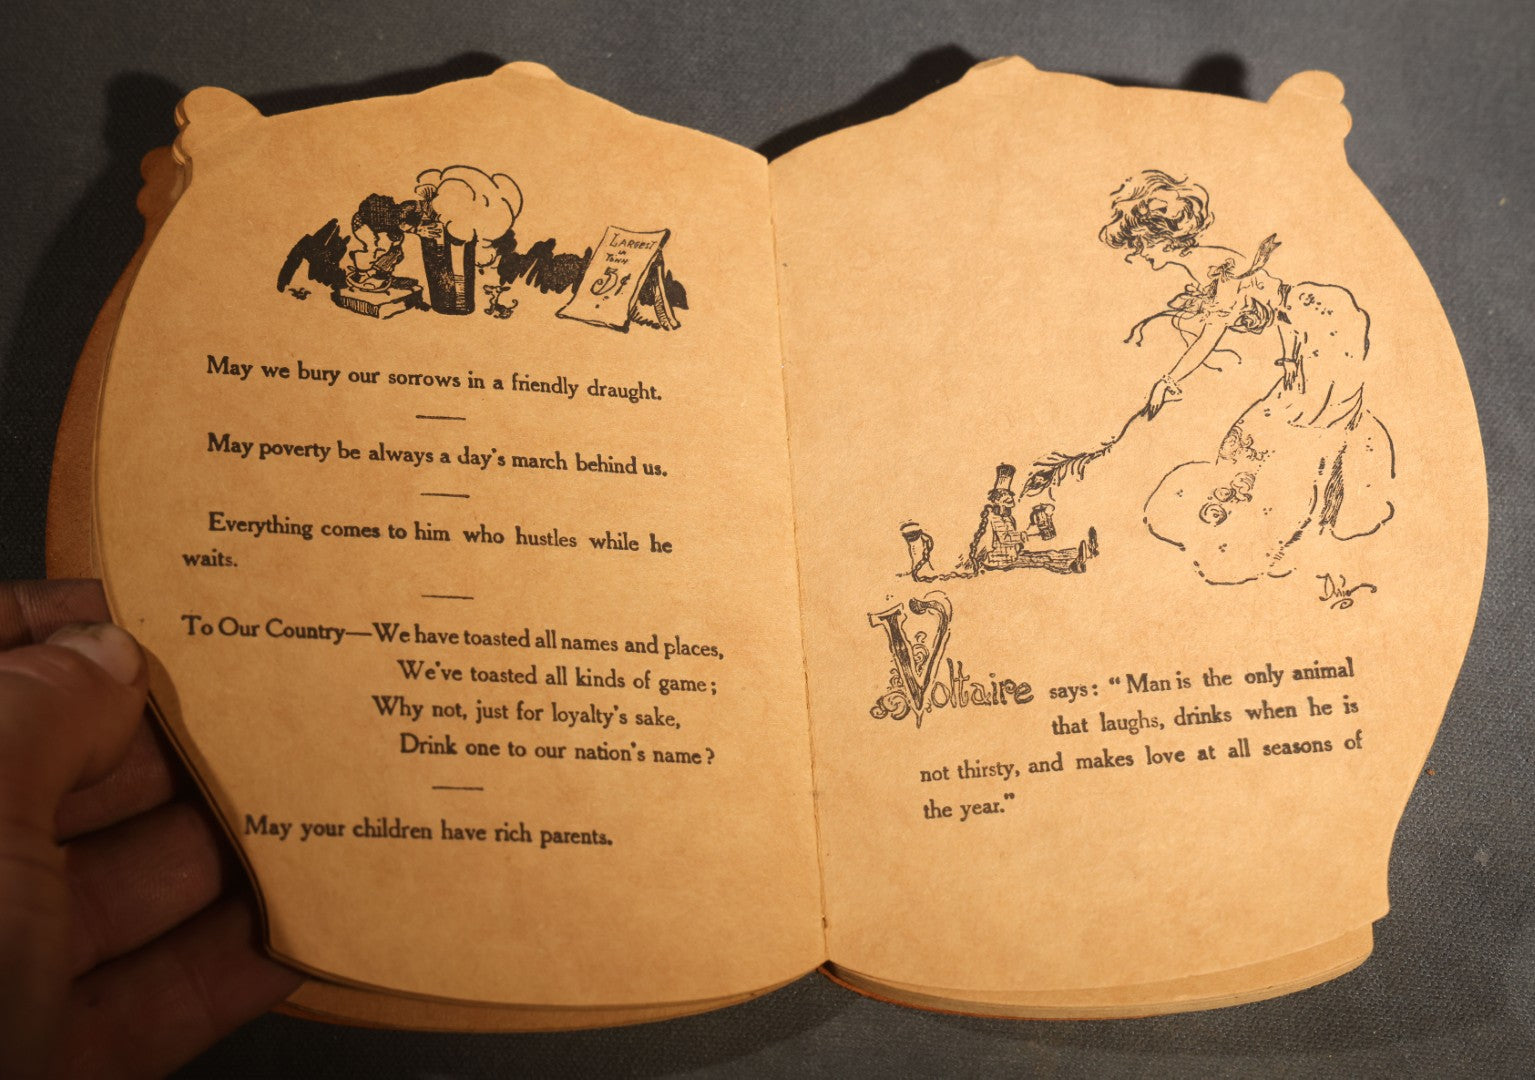 LARGEST
IN
TOWN
5¢
May we bury our sorrows in a friendly draught.
May poverty be always a day's march behind us.
Everything comes to him who hustles while he
waits.
To Our Country—We have toasted all names and places,
We've toasted all kinds of game;
Why not, just for loyalty's sake,
Drink one to our nation's name?
May your children have rich parents.
Voltaire says: "Man is the only animal
that laughs, drinks when he is
not thirsty, and makes love at all seasons of
the year."